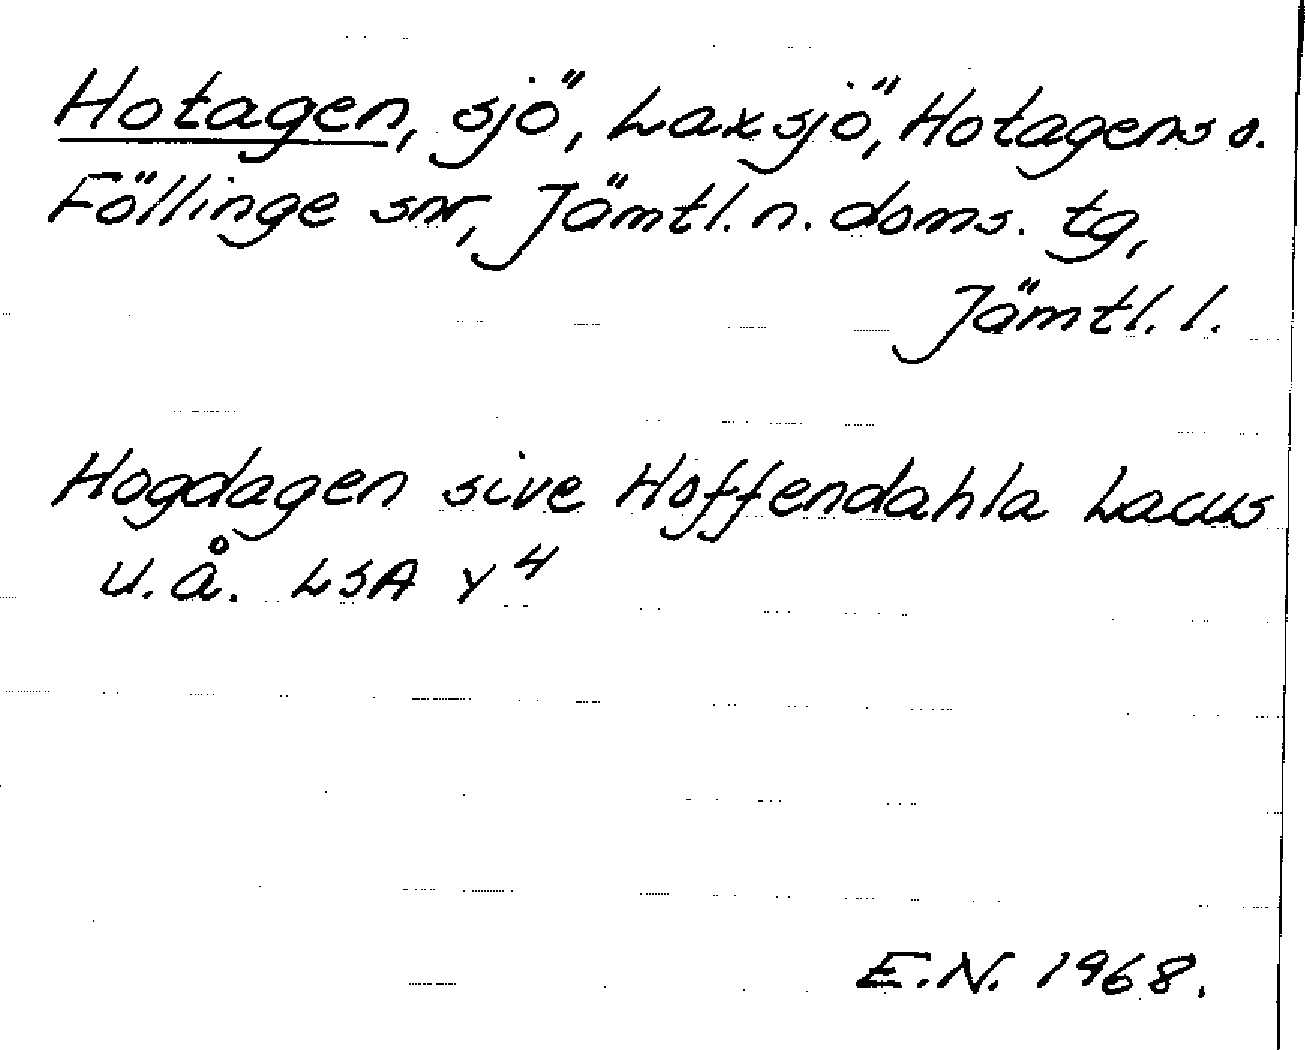 Hotagen, sjö, Laxsjö, Hotagens o.
Föllinge snr, Jämtl. n. doms. tg,
Jämtl. l.
Hogdagen sive Hoffendahla Lacus
u.å. LSA Y 4
E.N. 1968.